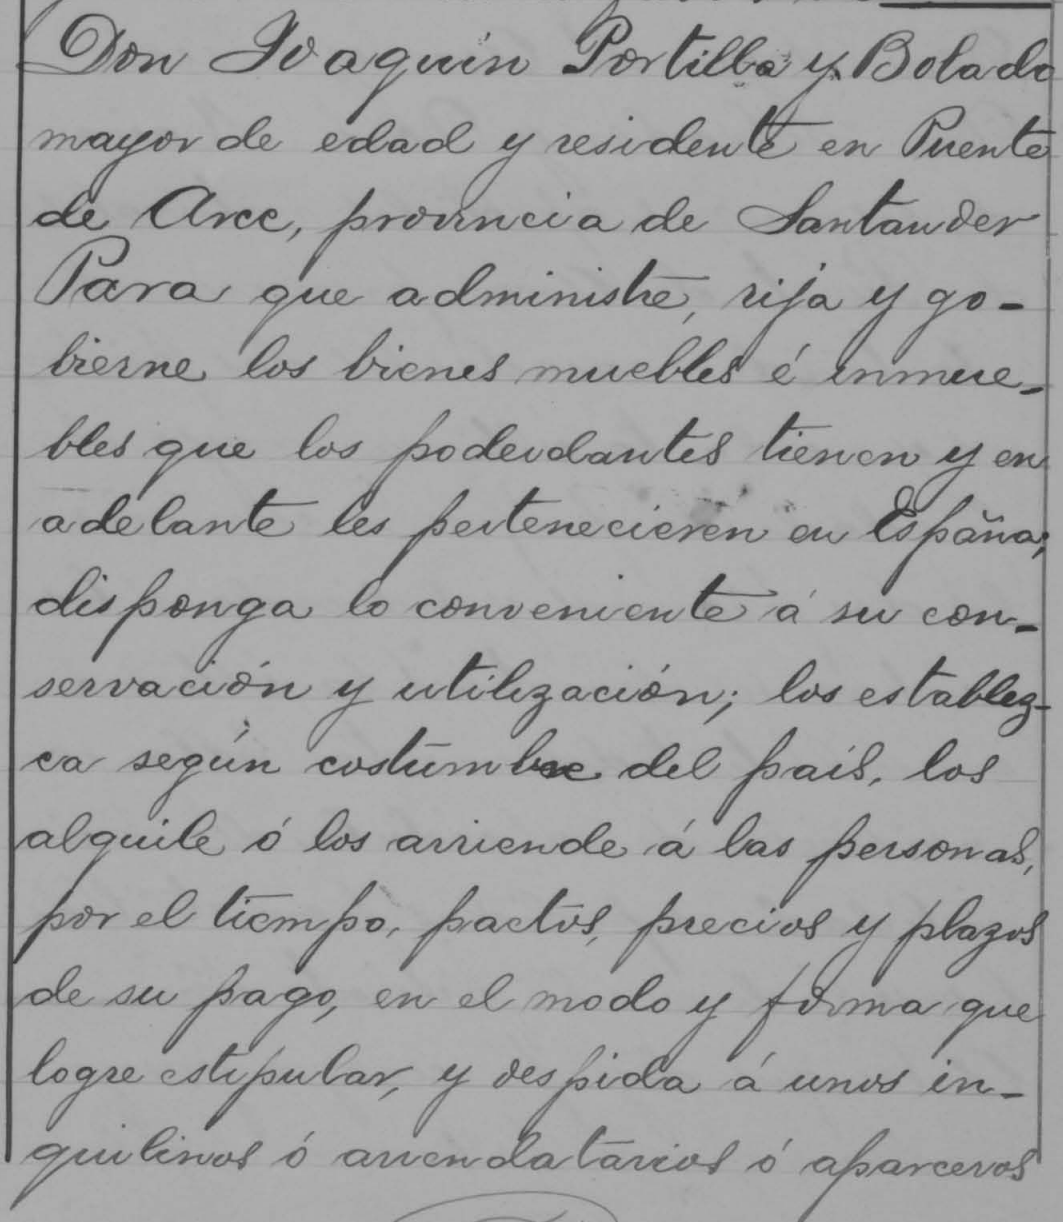 Don Joaquín Portilla y Bolado
mayor de edad y residente en Puente
de Arce, provincia de Santander
Para que administre, rija y go-
bierne los bienes muebles é inmue-
bles que los poderdantes tienen y en
adelante les pertenecieren en España;
disponga lo conveniente á su con-
servación y utilización; los establez-
ca según costumbre del país, los
alquile ó los arriende á las personas,
por el tiempo, pactos, precios y plazos
de su pago, en el modo y forma que
logre estipular, y despida á unos in-
quilinos ó arrendatarios ó aparceros